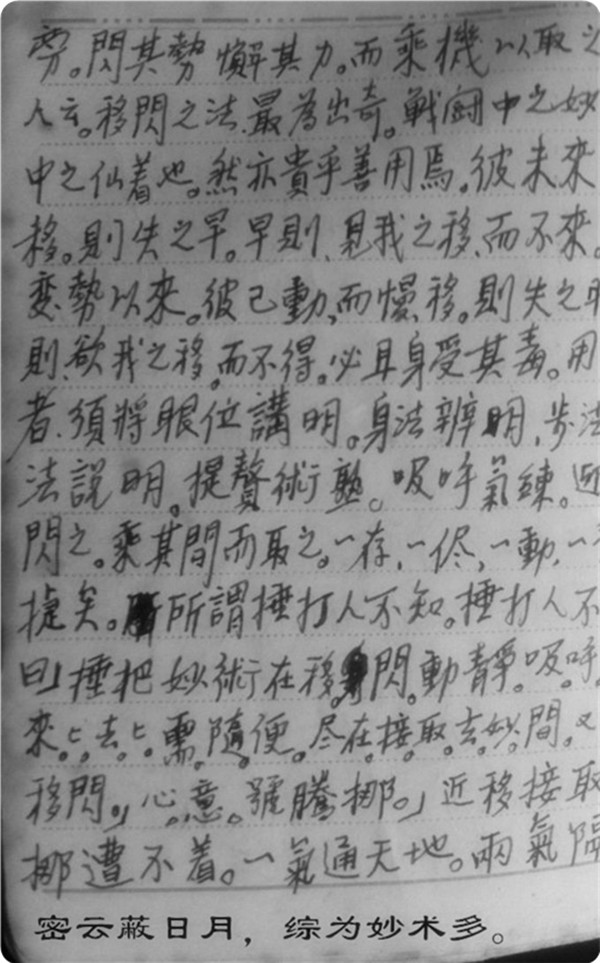 旁。閃其勢懈其力。而乘機以取之
人云。移閃之法、最為出奇。戰鬪中之妙
中之仙着也。然亦貴乎善用焉。彼未來
移。則失之早。早則、見我之移、而不來。
变勢以來。彼已動、而慢移。則失之
則、欲我之移、而不得。必且身受其毒。用
者、須將眼位講明。身法辨明、步法
法說明。提贅術塾。吸呼氣練。近
閃之。乘其間而取之。一存、一侭、一動、一
捷矣。所謂捶打人不知。捶打人不
曰」捶把妙術在移閃。動靜。吸。呼。
來。去。需。隨。便。尽。在。接。取。去。妙。間。又
移閃。」心。意。號騰挪。」近移接取
挪遭不着。一氣通天地。兩氣隔
密云蔽日月，综为妙术多。